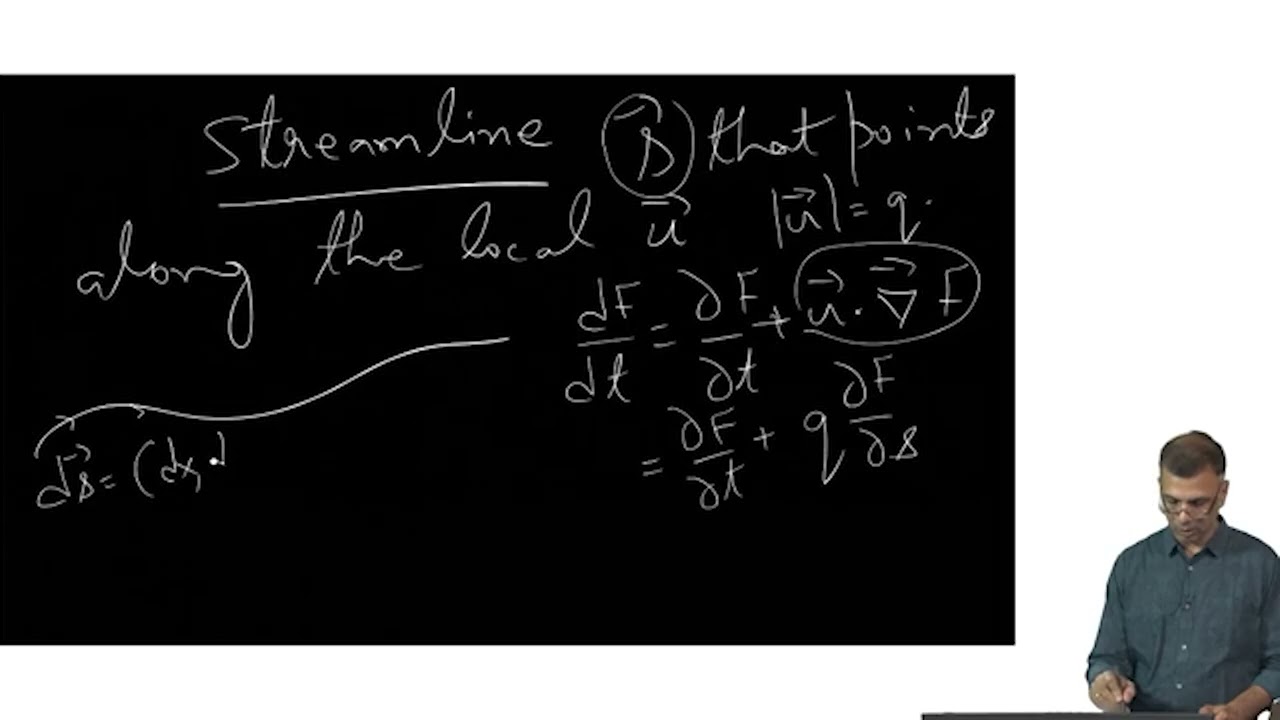 streamline s⃗ that points
along the local u⃗ |u⃗| = q.
dF/dt = ∂F/∂t + u⃗ · ∇⃗ F
= ∂F/∂t + q ∂F/∂s
ds⃗ = (dx, d